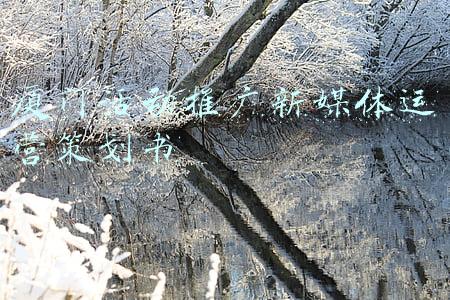 厦门活动推广新媒体运
营策划书